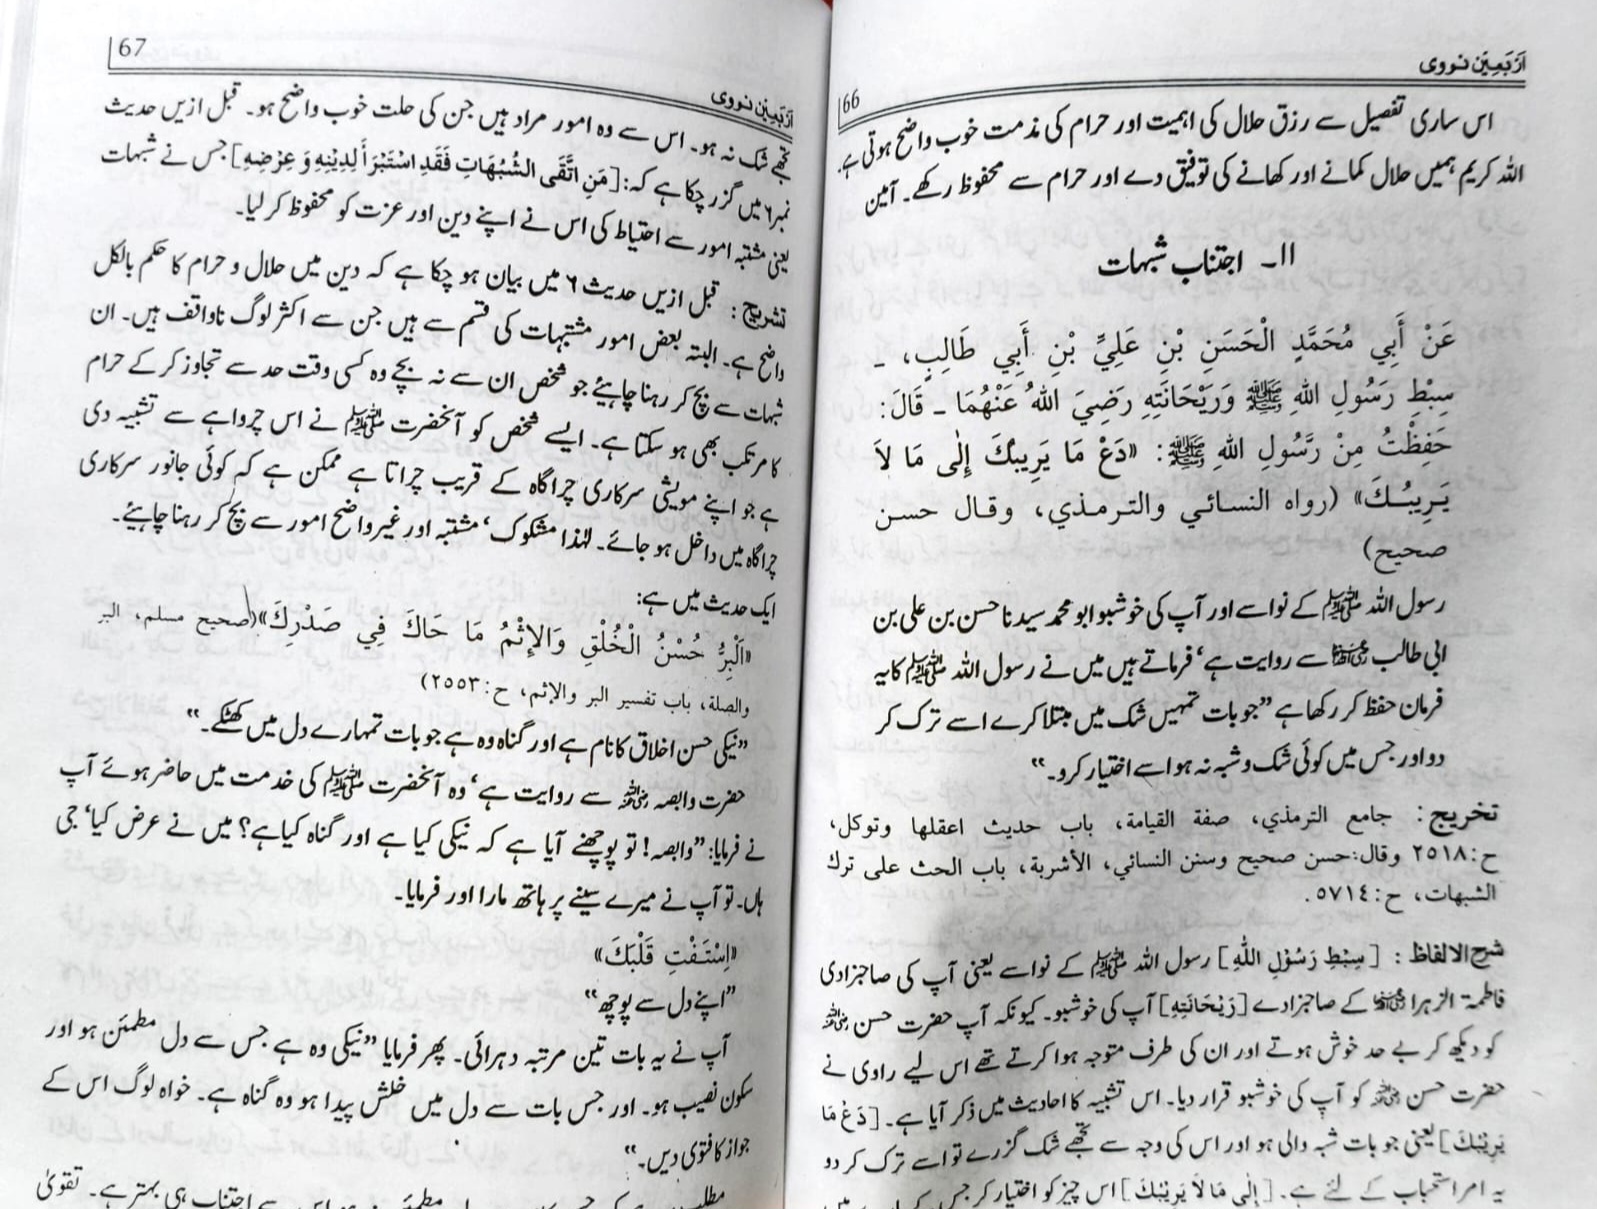 اَرْبَعِیْن نووی
66
اس ساری تفصیل سے رزق حلال کی اہمیت اور حرام کی مذمت خوب واضح ہوتی ہے۔
اللہ کریم ہمیں حلال کمانے اور کھانے کی توفیق دے اور حرام سے محفوظ رکھے۔ آمین
۱۱۔ اجتناب شبہات
عَنْ أَبِي مُحَمَّدٍ الْحَسَنِ بْنِ عَلِيِّ بْنِ أَبِي طَالِبٍ، ـ
سِبْطِ رَسُولِ اللهِ ﷺ وَرَيْحَانَتِهِ رَضِيَ اللهُ عَنْهُمَا ـ قَالَ:
حَفِظْتُ مِنْ رَّسُولِ اللهِ ﷺ: «دَعْ مَا يَرِيبُكَ إِلٰى مَا لاَ
يَرِيبُكَ» (رواه النسائي والترمذي، وقال حسن
صحيح)
رسول اللہ ﷺ کے نواسے اور آپ کی خوشبو ابو محمد سیدنا حسن بن علی بن
ابی طالب رضی اللہ عنہما سے روایت ہے‘ فرماتے ہیں میں نے رسول اللہ ﷺ کا یہ
فرمان حفظ کر رکھا ہے ”جو بات تمہیں شک میں مبتلا کرے اسے ترک کر
دو اور جس میں کوئی شک و شبہ نہ ہو اسے اختیار کرو۔“
تخريج: جامع الترمذي، صفة القيامة، باب حديث اعقلها وتوكل،
ح:٢٥١٨ وقال:حسن صحيح وسنن النسائي، الأشربة، باب الحث على ترك
الشبهات، ح:٥٧١٤.
شرح الالفاظ : [سِبْطِ رَسُوْلِ اللّٰهِ] رسول اللہ ﷺ کے نواسے یعنی آپ کی صاحبزادی
فاطمۃ الزہرا رضی اللہ عنہا کے صاحبزادے [رَيْحَانَتِهِ] آپ کی خوشبو۔ کیونکہ آپ حضرت حسن رضی اللہ عنہ
کو دیکھ کر بے حد خوش ہوتے اور ان کی طرف متوجہ ہوا کرتے تھے اس لیے راوی نے
حضرت حسن رضی اللہ عنہ کو آپ کی خوشبو قرار دیا۔ اس تشبیہ کا احادیث میں ذکر آیا ہے۔ [دَعْ مَا
يَرِيْبُكَ] یعنی جو بات شبہ والی ہو اور اس کی وجہ سے تجھے شک گزرے تو اسے ترک کر دو
یہ امر استحباب کے لئے ہے۔ [اِلٰى مَا لاَ يَرِيْبُكَ] اس چیز کو اختیار کر جس
67
اَرْبَعِیْن نووی
تجھے شک نہ ہو۔ اس سے وہ امور مراد ہیں جن کی حلت خوب واضح ہو۔ قبل ازیں حدیث
نمبر ۶ میں گزر چکا ہے کہ: [مَنِ اتَّقَى الشُّبُهَاتِ فَقَدِ اسْتَبْرَأَ لِدِيْنِهٖ وَ عِرْضِهٖ] جس نے شبہات
یعنی مشتبہ امور سے احتیاط کی اس نے اپنے دین اور عزت کو محفوظ کر لیا۔
تشریح : قبل ازیں حدیث ۶ میں بیان ہو چکا ہے کہ دین میں حلال و حرام کا حکم بالکل
واضح ہے۔ البتہ بعض امور مشتبہات کی قسم سے ہیں جن سے اکثر لوگ ناواقف ہیں۔ ان
شبہات سے بچ کر رہنا چاہیئے جو شخص ان سے نہ بچے وہ کسی وقت حد سے تجاوز کر کے حرام
کا مرتکب بھی ہو سکتا ہے۔ ایسے شخص کو آنحضرت ﷺ نے اس چرواہے سے تشبیہ دی
ہے جو اپنے مویشی سرکاری چراگاہ کے قریب چراتا ہے ممکن ہے کہ کوئی جانور سرکاری
چراگاہ میں داخل ہو جائے۔ لہٰذا مشکوک‘ مشتبہ اور غیر واضح امور سے بچ کر رہنا چاہیئے۔
ایک حدیث میں ہے:
«اَلْبِرُّ حُسْنُ الْخُلْقِ وَالإِثْمُ مَا حَاكَ فِي صَدْرِكَ»(صحيح مسلم، البر
والصلة، باب تفسير البر والإثم، ح:٢٥٥٣)
”نیکی حسن اخلاق کا نام ہے اور گناہ وہ ہے جو بات تمہارے دل میں کھٹکے۔“
حضرت وابصہ رضی اللہ عنہ سے روایت ہے‘ وہ آنحضرت ﷺ کی خدمت میں حاضر ہوئے آپ
نے فرمایا: ”وابصہ! تو پوچھنے آیا ہے کہ نیکی کیا ہے اور گناہ کیا ہے؟ میں نے عرض کیا‘ جی
ہاں۔ تو آپ نے میرے سینے پر ہاتھ مارا اور فرمایا۔
«اِسْتَفْتِ قَلْبَكَ»
”اپنے دل سے پوچھ“
آپ نے یہ بات تین مرتبہ دہرائی۔ پھر فرمایا ”نیکی وہ ہے جس سے دل مطمئن ہو اور
سکون نصیب ہو۔ اور جس بات سے دل میں خلش پیدا ہو وہ گناہ ہے۔ خواہ لوگ اس کے
جواز کا فتویٰ دیں۔“
اجتناب ہی بہتر ہے۔ تقویٰ